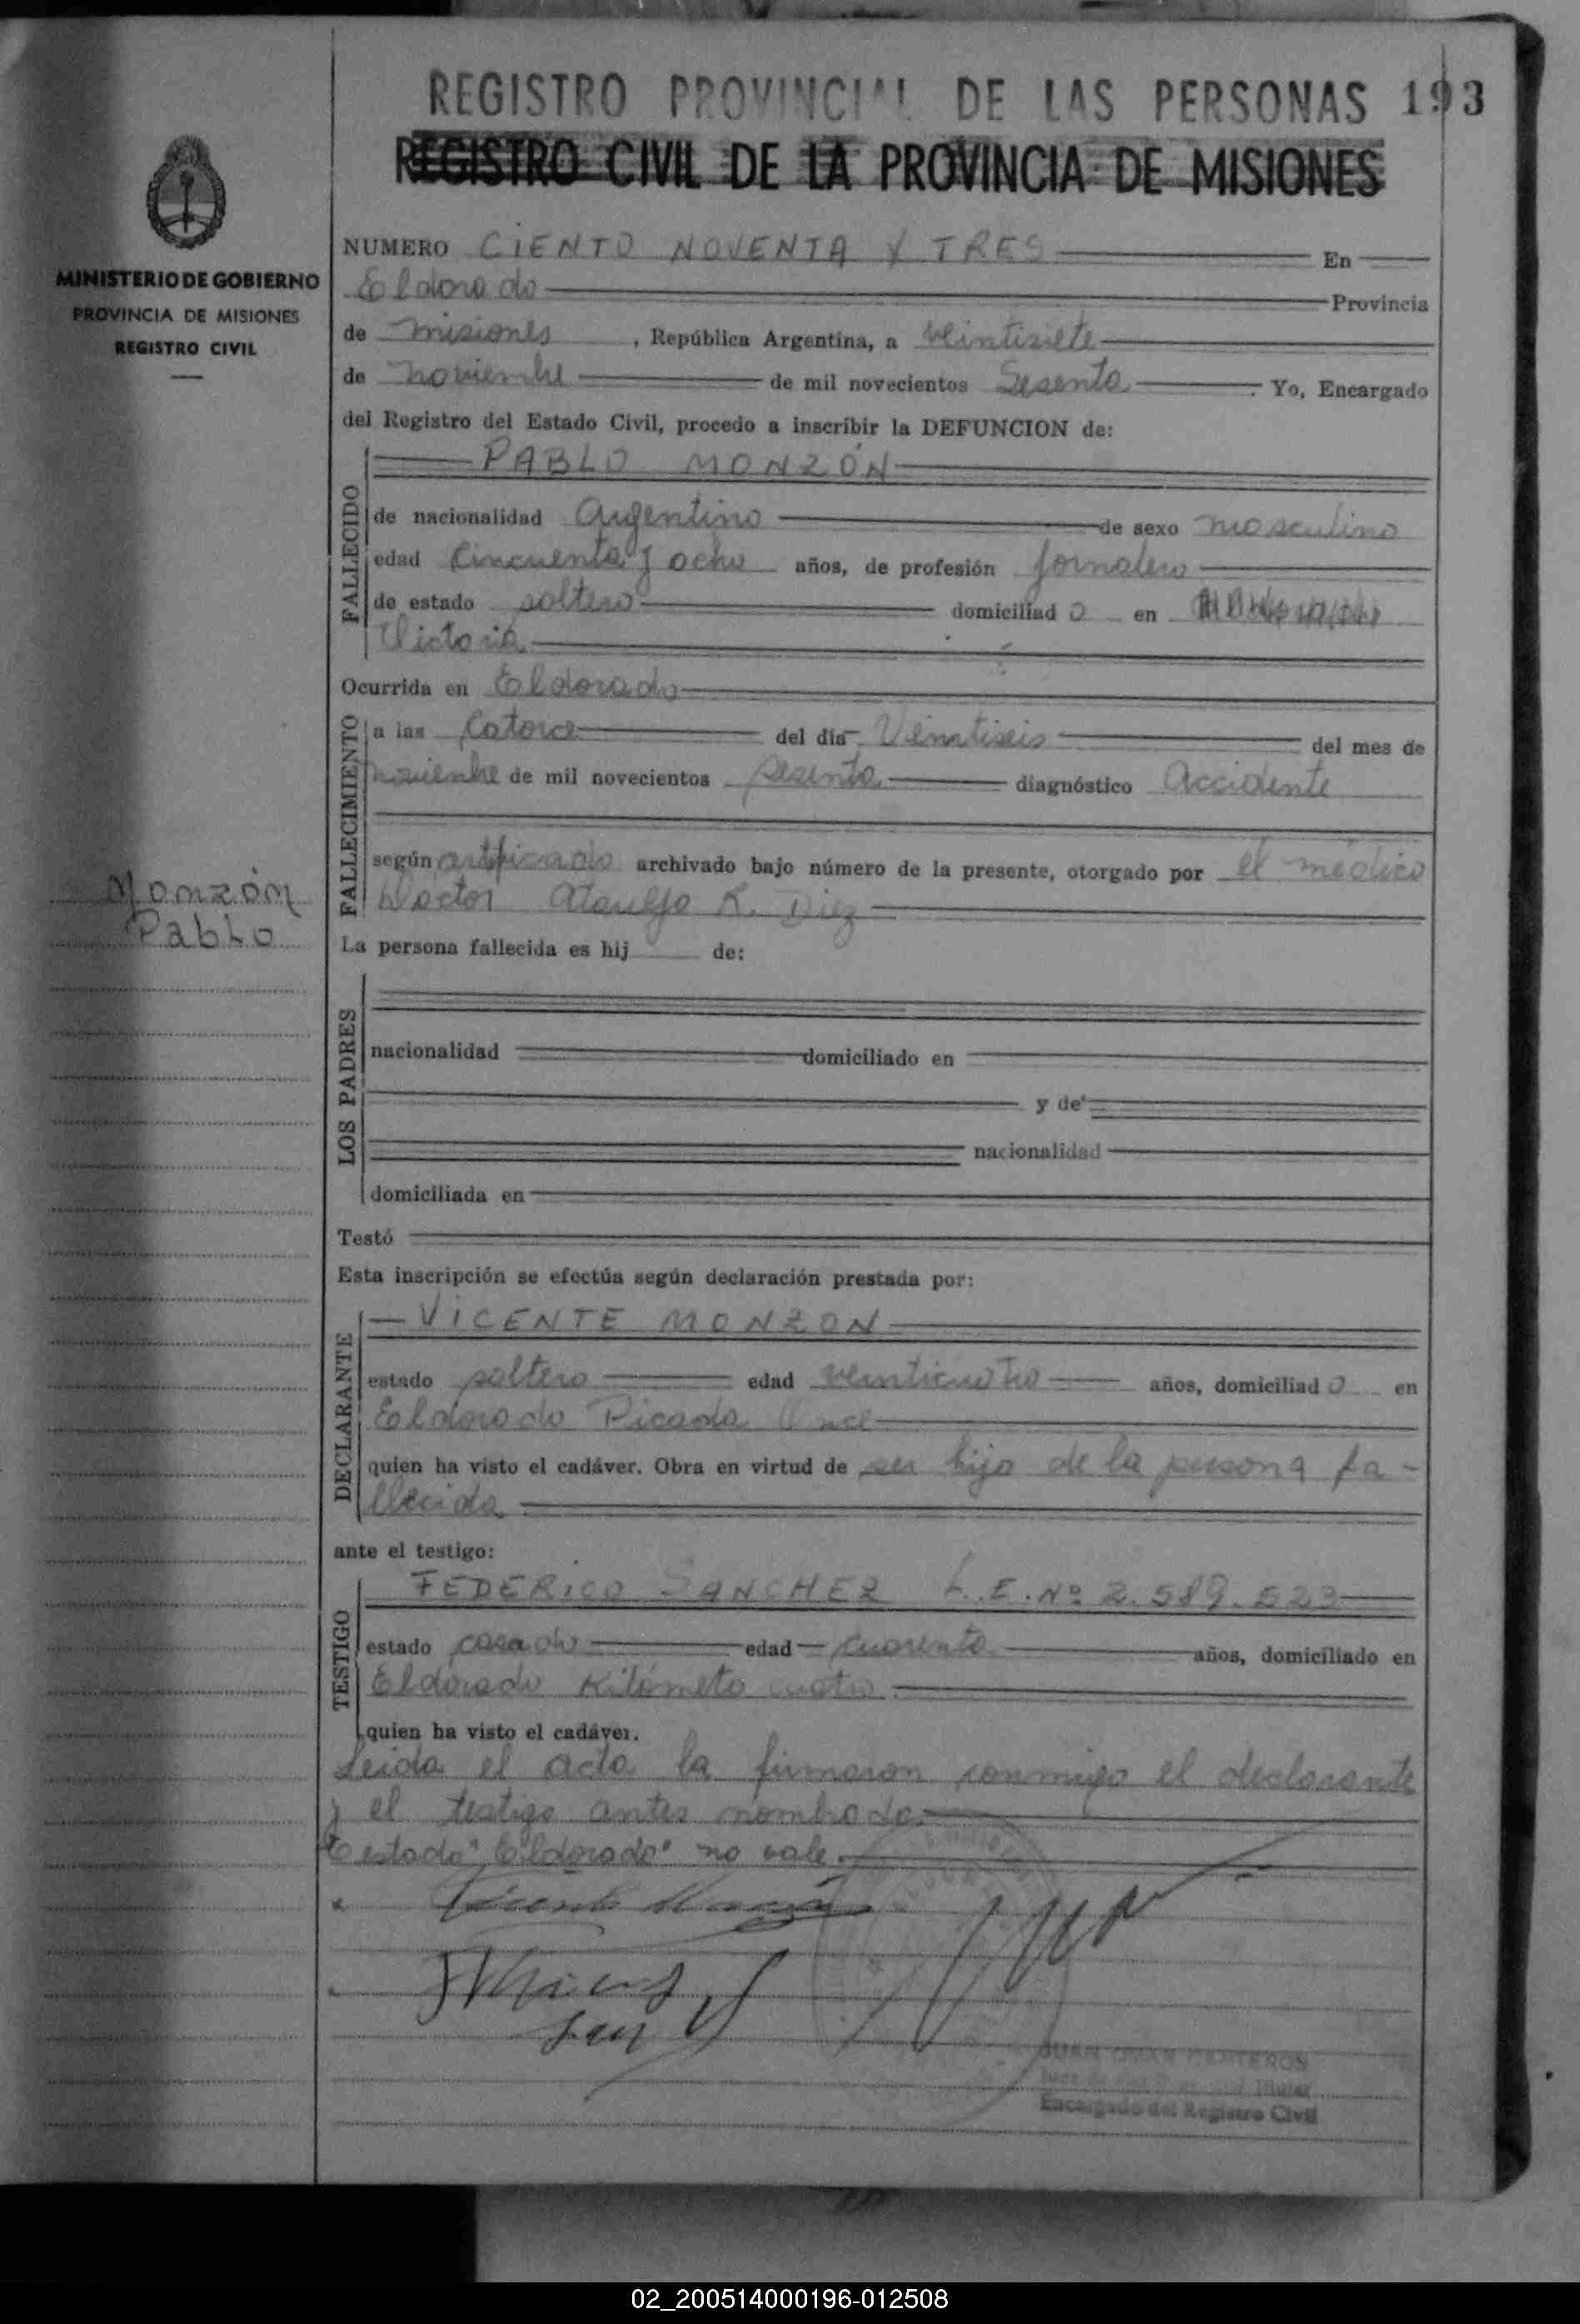 REGISTRO PROVINCIAL DE LAS PERSONAS 193
REGISTRO CIVIL DE LA PROVINCIA DE MISIONES
MINISTERIO DE GOBIERNO
PROVINCIA DE MISIONES
REGISTRO CIVIL
Monzón
Pablo
NUMERO CIENTO NOVENTA Y TRES En
Eldorado Provincia
de misiones, República Argentina, a veintisiete
de noviembre de mil novecientos Sesenta. Yo, Encargado
del Registro del Estado Civil, procedo a inscribir la DEFUNCION de:
FALLECIDO
PABLO MONZÓN
de nacionalidad Argentino de sexo masculino
edad Cincuenta y ocho años, de profesión Jornalero
de estado soltero domiciliad o en
Victoria
Ocurrida en Eldorado
FALLECIMIENTO
a las Catorce del día Veintiseis del mes de
noviembre de mil novecientos sesenta diagnóstico Accidente
según certificado archivado bajo número de la presente, otorgado por el médico
Doctor Ataulfo R. Diez
La persona fallecida es hij de:
LOS PADRES
nacionalidad domiciliado en
y de
nacionalidad
domiciliada en
Testó
Esta inscripción se efectúa según declaración prestada por:
DECLARANTE
VICENTE MONZON
estado soltero edad veinticuatro años, domiciliad o en
Eldorado Picada Once
quien ha visto el cadáver. Obra en virtud de ser hijo de la persona fa-
llecida
ante el testigo:
TESTIGO
FEDERICO SANCHEZ L.E. Nº 2.589.523
estado casado edad cuarenta años, domiciliado en
Eldorado Kilómeto cuatro
quien ha visto el cadáver.
Leida el acta la firmaron conmigo el declarante
y el testigo antes nombrado.
Testado "Eldorado" no vale.
Vicente Monzón
JUAN OMAR CANTEROS
Titular
Encargado del Registro Civil
02_200514000196-012508